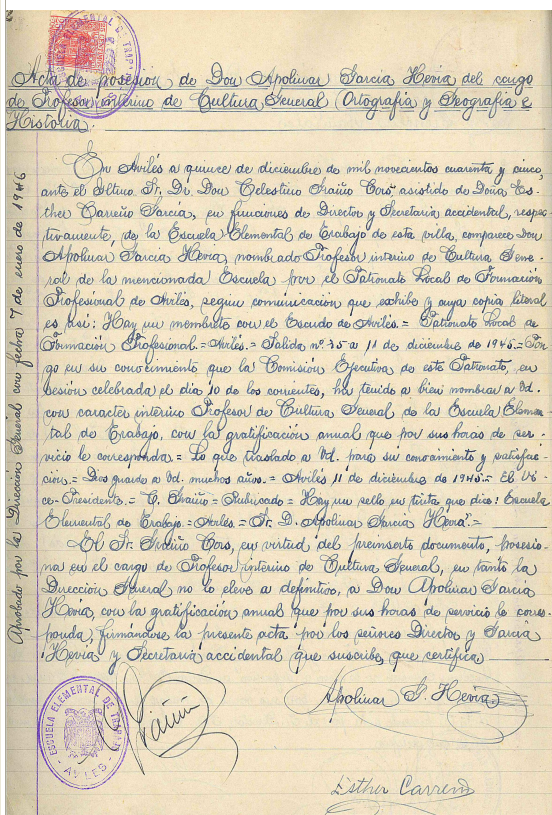 Acta de posesion de Don Apolinar Garcia Hevia del cargo
de Profesor interino de Cultura General (Ortografia y Geografia e
Historia.
En Avilés a quince de diciembre de mil novecientos cuarenta y cinco,
ante el Iltmo. Sr. D. Don Celestino Graiño Cors asistido de Doña Es-
ther Carreño Garcia, en funciones de Director y Secretaria accidental, respec-
tivamente, de la Escuela Elemental de Trabajo de esta villa, comparece Don
Apolinar Garcia Hevia, nombrado Profesor interino de Cultura Gene-
ral de la mencionada Escuela por el Patronato Local de Formación
Profesional de Avilés, según comunicación que exhibe y cuya copia literal
es asi: Hay un membrete con el Escudo de Avilés.= Patronato Local de
Formación Profesional.=Avilés.= Salida nº 35 a 11 de diciembre de 1945.=Pon-
go en su conocimiento que la Comisión Ejecutiva de este Patronato, en
sesión celebrada el dia 10 de los corrientes, ha tenido a bien nombrar a Vd.
con caracter interino Profesor de Cultura General de la Escuela Elemen-
tal de Trabajo, con la gratificación anual que por sus horas de ser-
vicio le corresponda = Lo que traslado a Vd. para su conocimiento y satisfac-
ción.= Dios guarde a Vd. muchos años.= Avilés 11 de diciembre de 1945.= El Vi-
ce-Presidente.= C. Graiño=Rubricado=Hay un sello en tinta que dice: Escuela
Elemental de Trabajo.=Avilés.= Sr. D. Apolinar Garcia Hevia.=
El Sr. Graiño Cors, en virtud del preinserto documento, posesio-
na en el cargo de Profesor interino de Cultura General, en tanto la
Dirección General no lo eleve a definitivo, a Don Apolinar Garcia
Hevia, con la gratificación anual que por sus horas de servicio le corres-
ponda, firmándose la presente acta por los señores Director y Garcia
Hevia y Secretaria accidental que suscribe, que certifica,
Apolinar G. Hevia
Graiño
Esther Carreño
Aprobado por la Dirección General con fecha 7 de enero de 1946
ESCUELA ELEMENTAL DE TRABAJO
AVILES